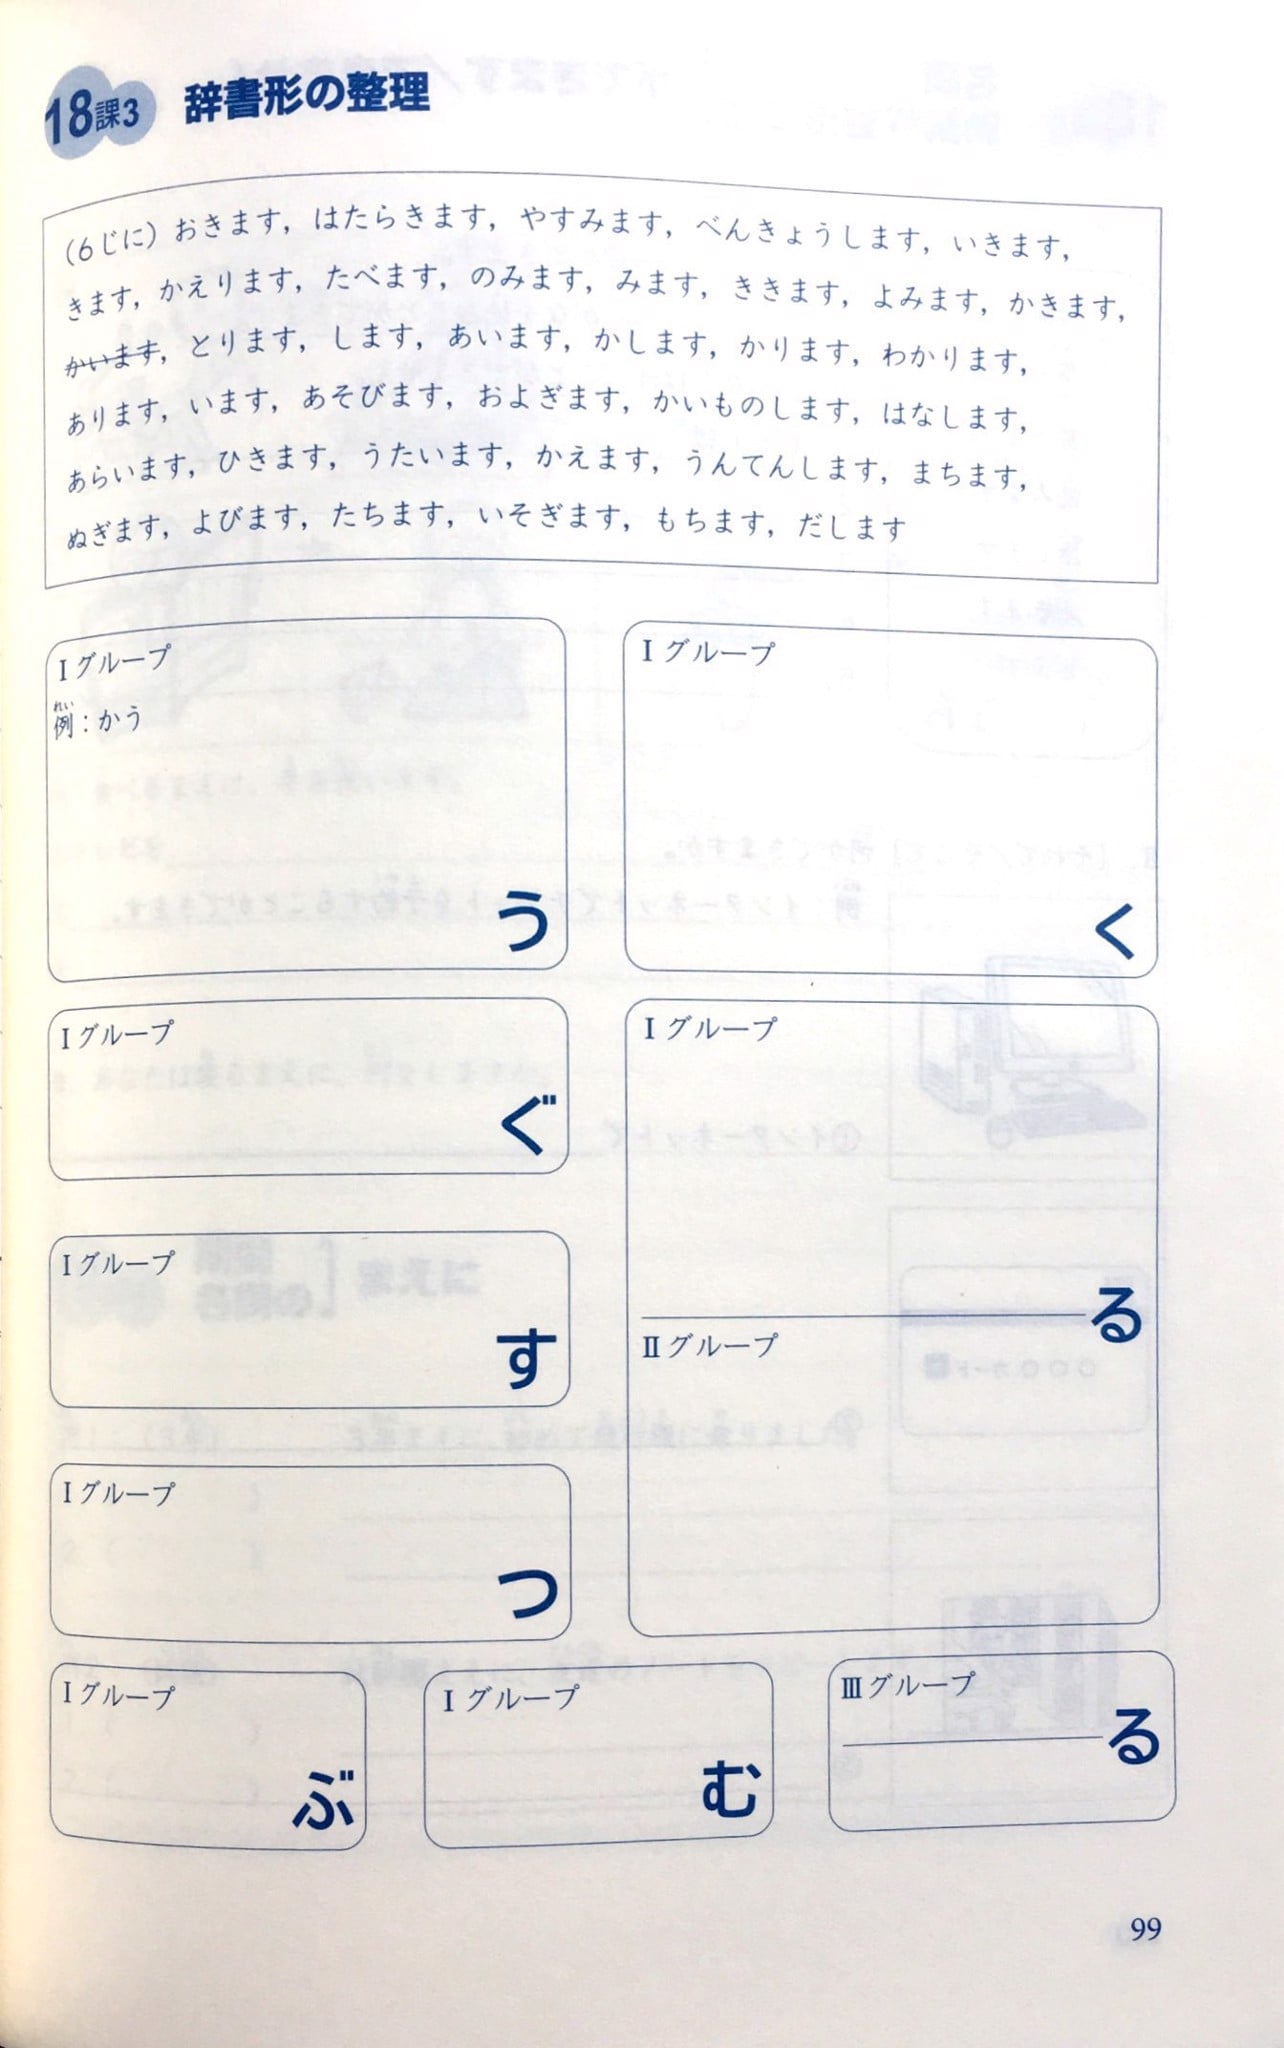 18課3 辞書形の整理
(6じに)おきます，はたらきます，やすみます，べんきょうします，いきます，
きます，かえります，たべます，のみます，みます，ききます，よみます，かきます，
かいます，とります，します，あいます，かします，かります，わかります，
あります，います，あそびます，およぎます，かいものします，はなします，
あらいます，ひきます，うたいます，かえます，うんてんします，まちます，
ぬぎます，よびます，たちます，いそぎます，もちます，だします
Ⅰグループ
れい
例：かう
う
Ⅰグループ
く
Ⅰグループ
ぐ
Ⅰグループ
る
Ⅱグループ
Ⅰグループ
す
Ⅰグループ
つ
Ⅰグループ
ぶ
Ⅰグループ
む
Ⅲグループ
る
99